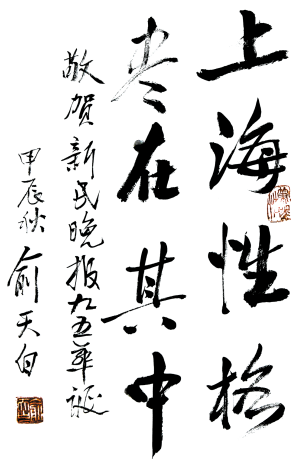 上海性格
尽在其中
敬贺新民晚报九五华诞
甲辰秋 俞天白